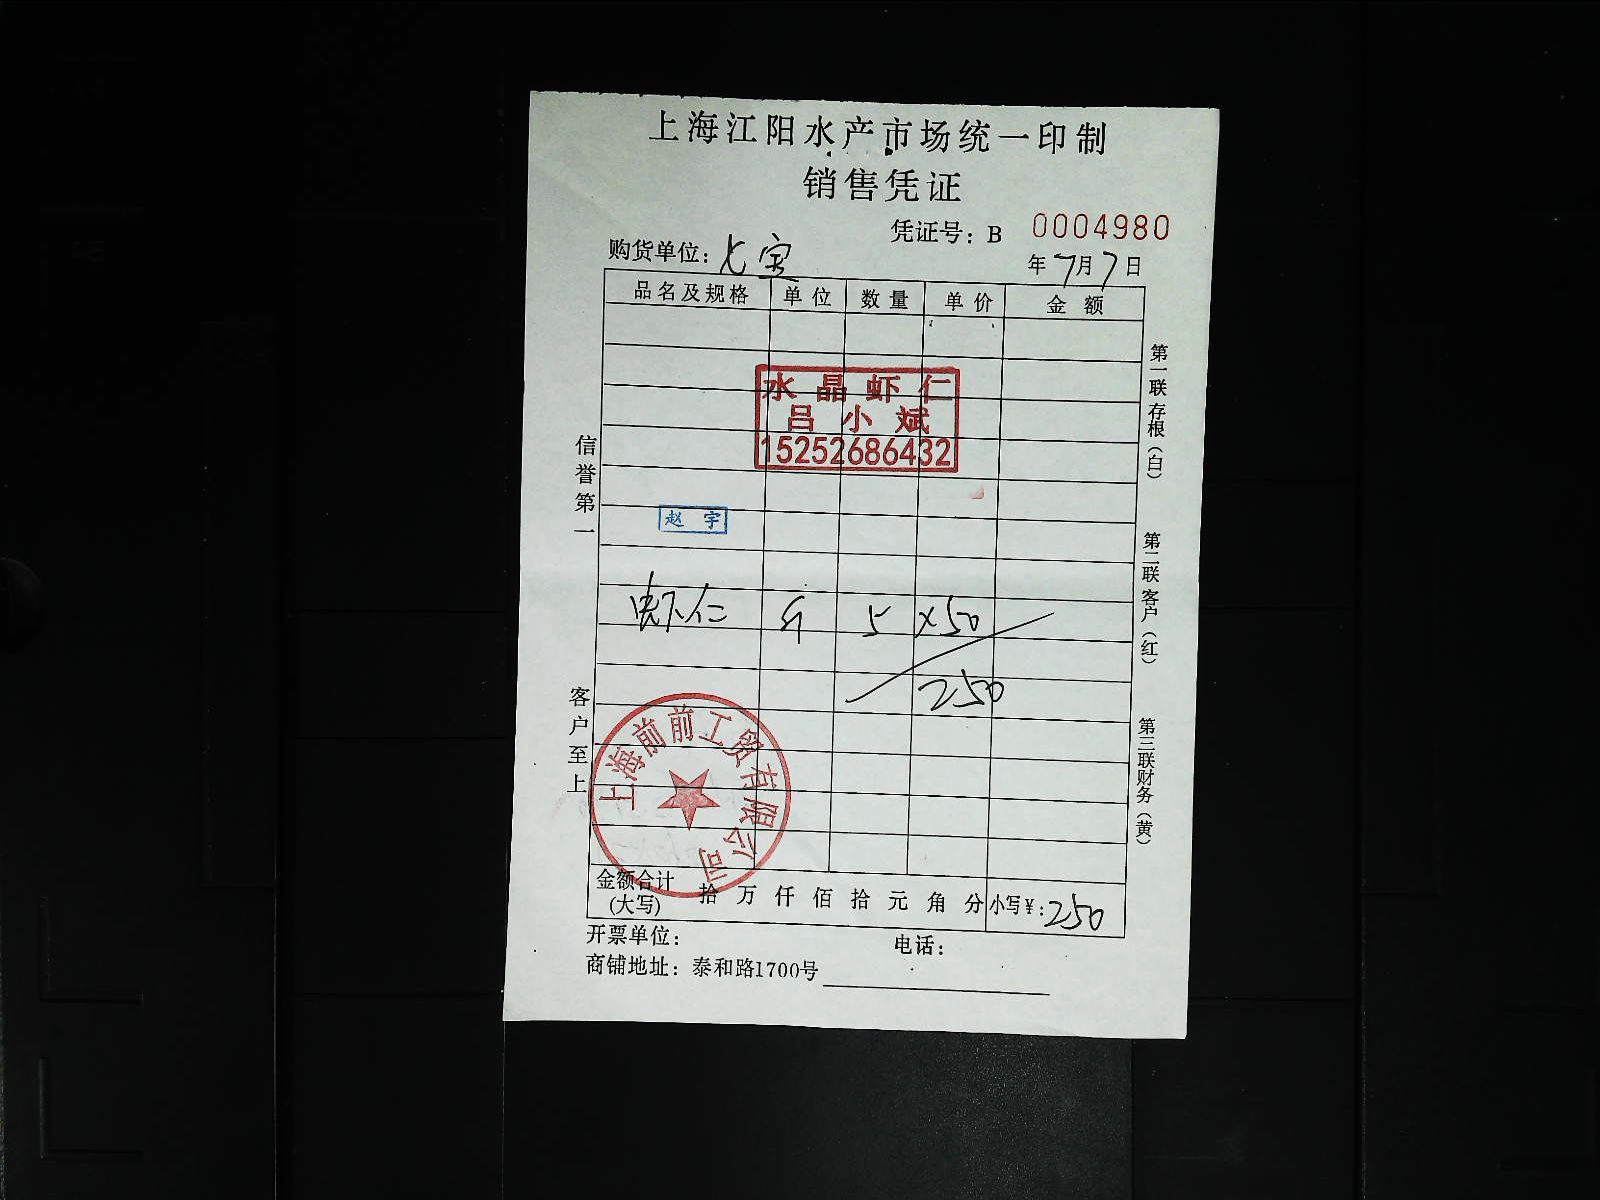 上海江阳水产市场统一印制
销售凭证
凭证号：B 0004980
购货单位：七宝
年7月7日
品名及规格 单位 数量 单价 金额
水晶虾仁
吕小斌
15252686432
赵宇
虾仁 斤 5 ×50
250
上海前前工贸有限公司
金额合计(大写) 拾 万 仟 佰 拾 元 角 分 小写￥：250
开票单位： 电话：
商铺地址：泰和路1700号
信誉第一
客户至上
第一联存根（白）
第二联客户（红）
第三联财务（黄）